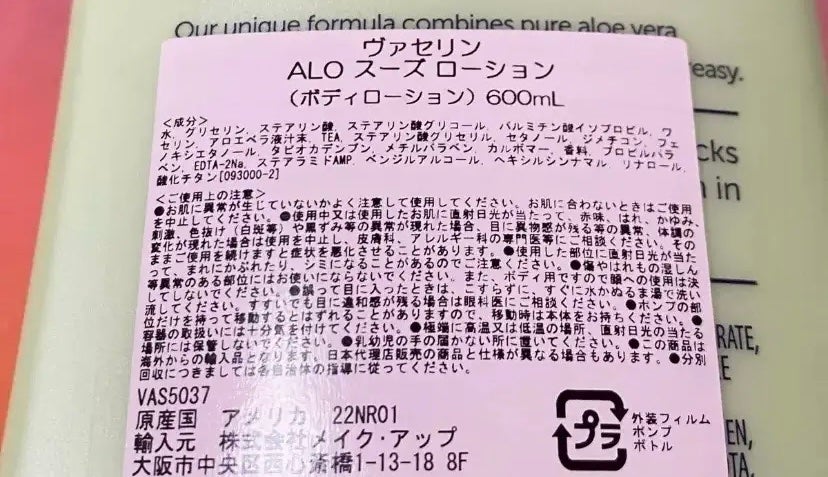 Our unique formula combines pure aloe vera
easy.
ヴァセリン
ALO スーズ ローション
(ボディローション) 600mL
<成分>
水、グリセリン、ステアリン酸、ステアリン酸グリコール、パルミチン酸イソプロピル、ワ
セリン、アロエベラ液汁末、TEA、ステアリン酸グリセリル、セタノール、ジメチコン、フェ
ノキシエタノール、タピオカデンプン、メチルパラベン、カルボマー、香料、プロピルパラ
ベン、EDTA-2Na、ステアラミドAMP、ベンジルアルコール、ヘキシルシンナマル、リナロール、
酸化チタン[093000-2]
<ご使用上の注意>
●お肌に異常が生じていないかよく注意して使用してください。お肌に合わないときはご使用
を中止してください。●使用中又は使用したお肌に直射日光が当たって、赤味、はれ、かゆみ、
刺激、色抜け(白斑等)や黒ずみ等の異常が現れた場合、目に異物感が残る等の異常、体調の
変化が現れた場合は使用を中止し、皮膚科、アレルギー科の専門医等にご相談ください。その
ままご使用を続けますと症状を悪化させることがあります。●使用した部位に直射日光が当た
って、まれにかぶれたり、シミになることがあるのでご注意ください。●傷やはれもの湿しん
等異常のある部位にはお使いにならないでください。また、ボディ用ですので顔への使用は決
してしないでください。●誤って目に入ったときは、こすらずに、すぐに水かぬるま湯で洗い
流してください。すすいでも目に違和感が残る場合は眼科医にご相談ください。●ポンプの部
位だけを持って移動するとはずれることがありますので、移動時は本体をお持ちください。●
容器の取扱いには十分気を付けてください。●極端に高温又は低温の場所、直射日光の当たる
場所には保管しないでください。●乳幼児の手の届かない所に置いてください。●この商品は
海外からの輸入品となります。日本代理店販売の商品と仕様が異なる場合もあります。●分別
回収につきましては各自治体の指導に従ってください。
VAS5037
原産国 アメリカ 22NR01
輸入元 株式会社メイク・アップ
大阪市中央区西心斎橋1-13-18 8F
プラ
外装フィルム
ポンプ
ボトル
cks
n in
RATE,
E
EN,
TA,